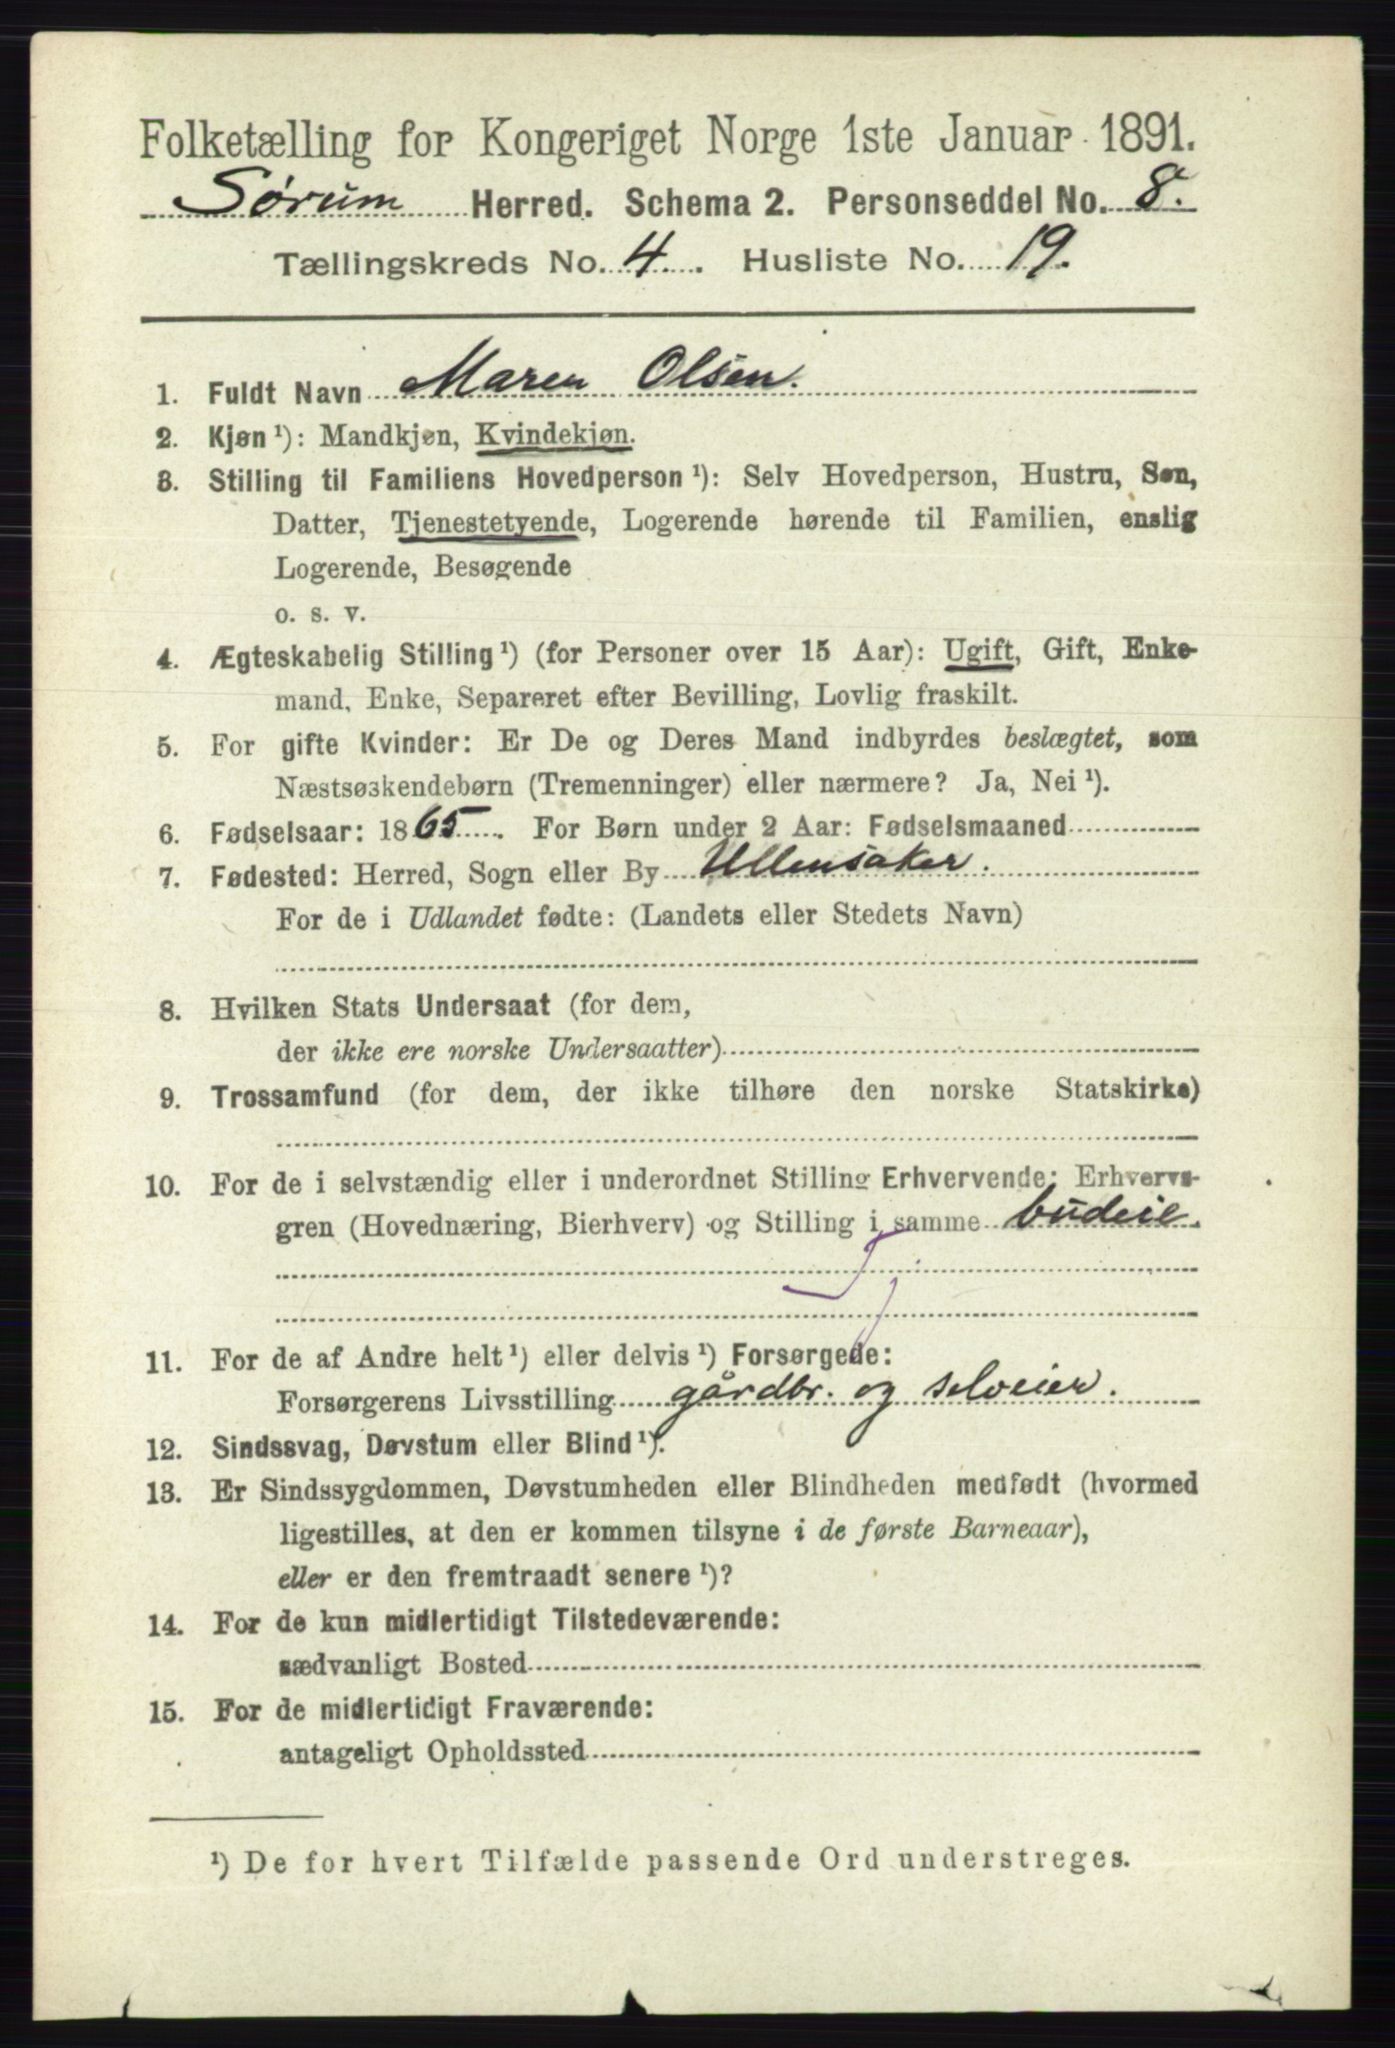 Folketælling for Kongeriget Norge 1ste Januar 1891.
Sørum Herred. Schema 2. Personseddel No. 8.
Tællingskreds No. 4. Husliste No. 19.
1. Fuldt Navn Maren Olsen.
2. Kjøn ¹): Mandkjøn, Kvindekjøn.
3. Stilling til Familiens Hovedperson ¹): Selv Hovedperson, Hustru, Søn,
Datter, Tjenestetyende, Logerende hørende til Familien, enslig
Logerende, Besøgende
o. s. v.
4. Ægteskabelig Stilling ¹) (for Personer over 15 Aar): Ugift, Gift, Enke-
mand, Enke, Separeret efter Bevilling, Lovlig fraskilt.
5. For gifte Kvinder: Er De og Deres Mand indbyrdes beslægtet, som
Næstsøskendebørn (Tremenninger) eller nærmere? Ja, Nei ¹).
6. Fødselsaar: 1865. For Børn under 2 Aar: Fødselsmaaned
7. Fødested: Herred, Sogn eller By Ullensaker.
For de i Udlandet fødte: (Landets eller Stedets Navn)
8. Hvilken Stats Undersaat (for dem,
der ikke ere norske Undersaatter)
9. Trossamfund (for dem, der ikke tilhøre den norske Statskirke)
10. For de i selvstændig eller i underordnet Stilling Erhvervende: Erhvervs-
gren (Hovednæring, Bierhverv) og Stilling i samme budeie.
11. For de af Andre helt ¹) eller delvis ¹) Forsørgede:
Forsørgerens Livsstilling gårdbr. og selveier.
12. Sindssvag, Døvstum eller Blind ¹).
13. Er Sindssygdommen, Døvstumheden eller Blindheden medfødt (hvormed
ligestilles, at den er kommen tilsyne i de første Barneaar),
eller er den fremtraadt senere ¹)?
14. For de kun midlertidigt Tilstedeværende:
sædvanligt Bosted
15. For de midlertidigt Fraværende:
antageligt Opholdssted
¹) De for hvert Tilfælde passende Ord understreges.